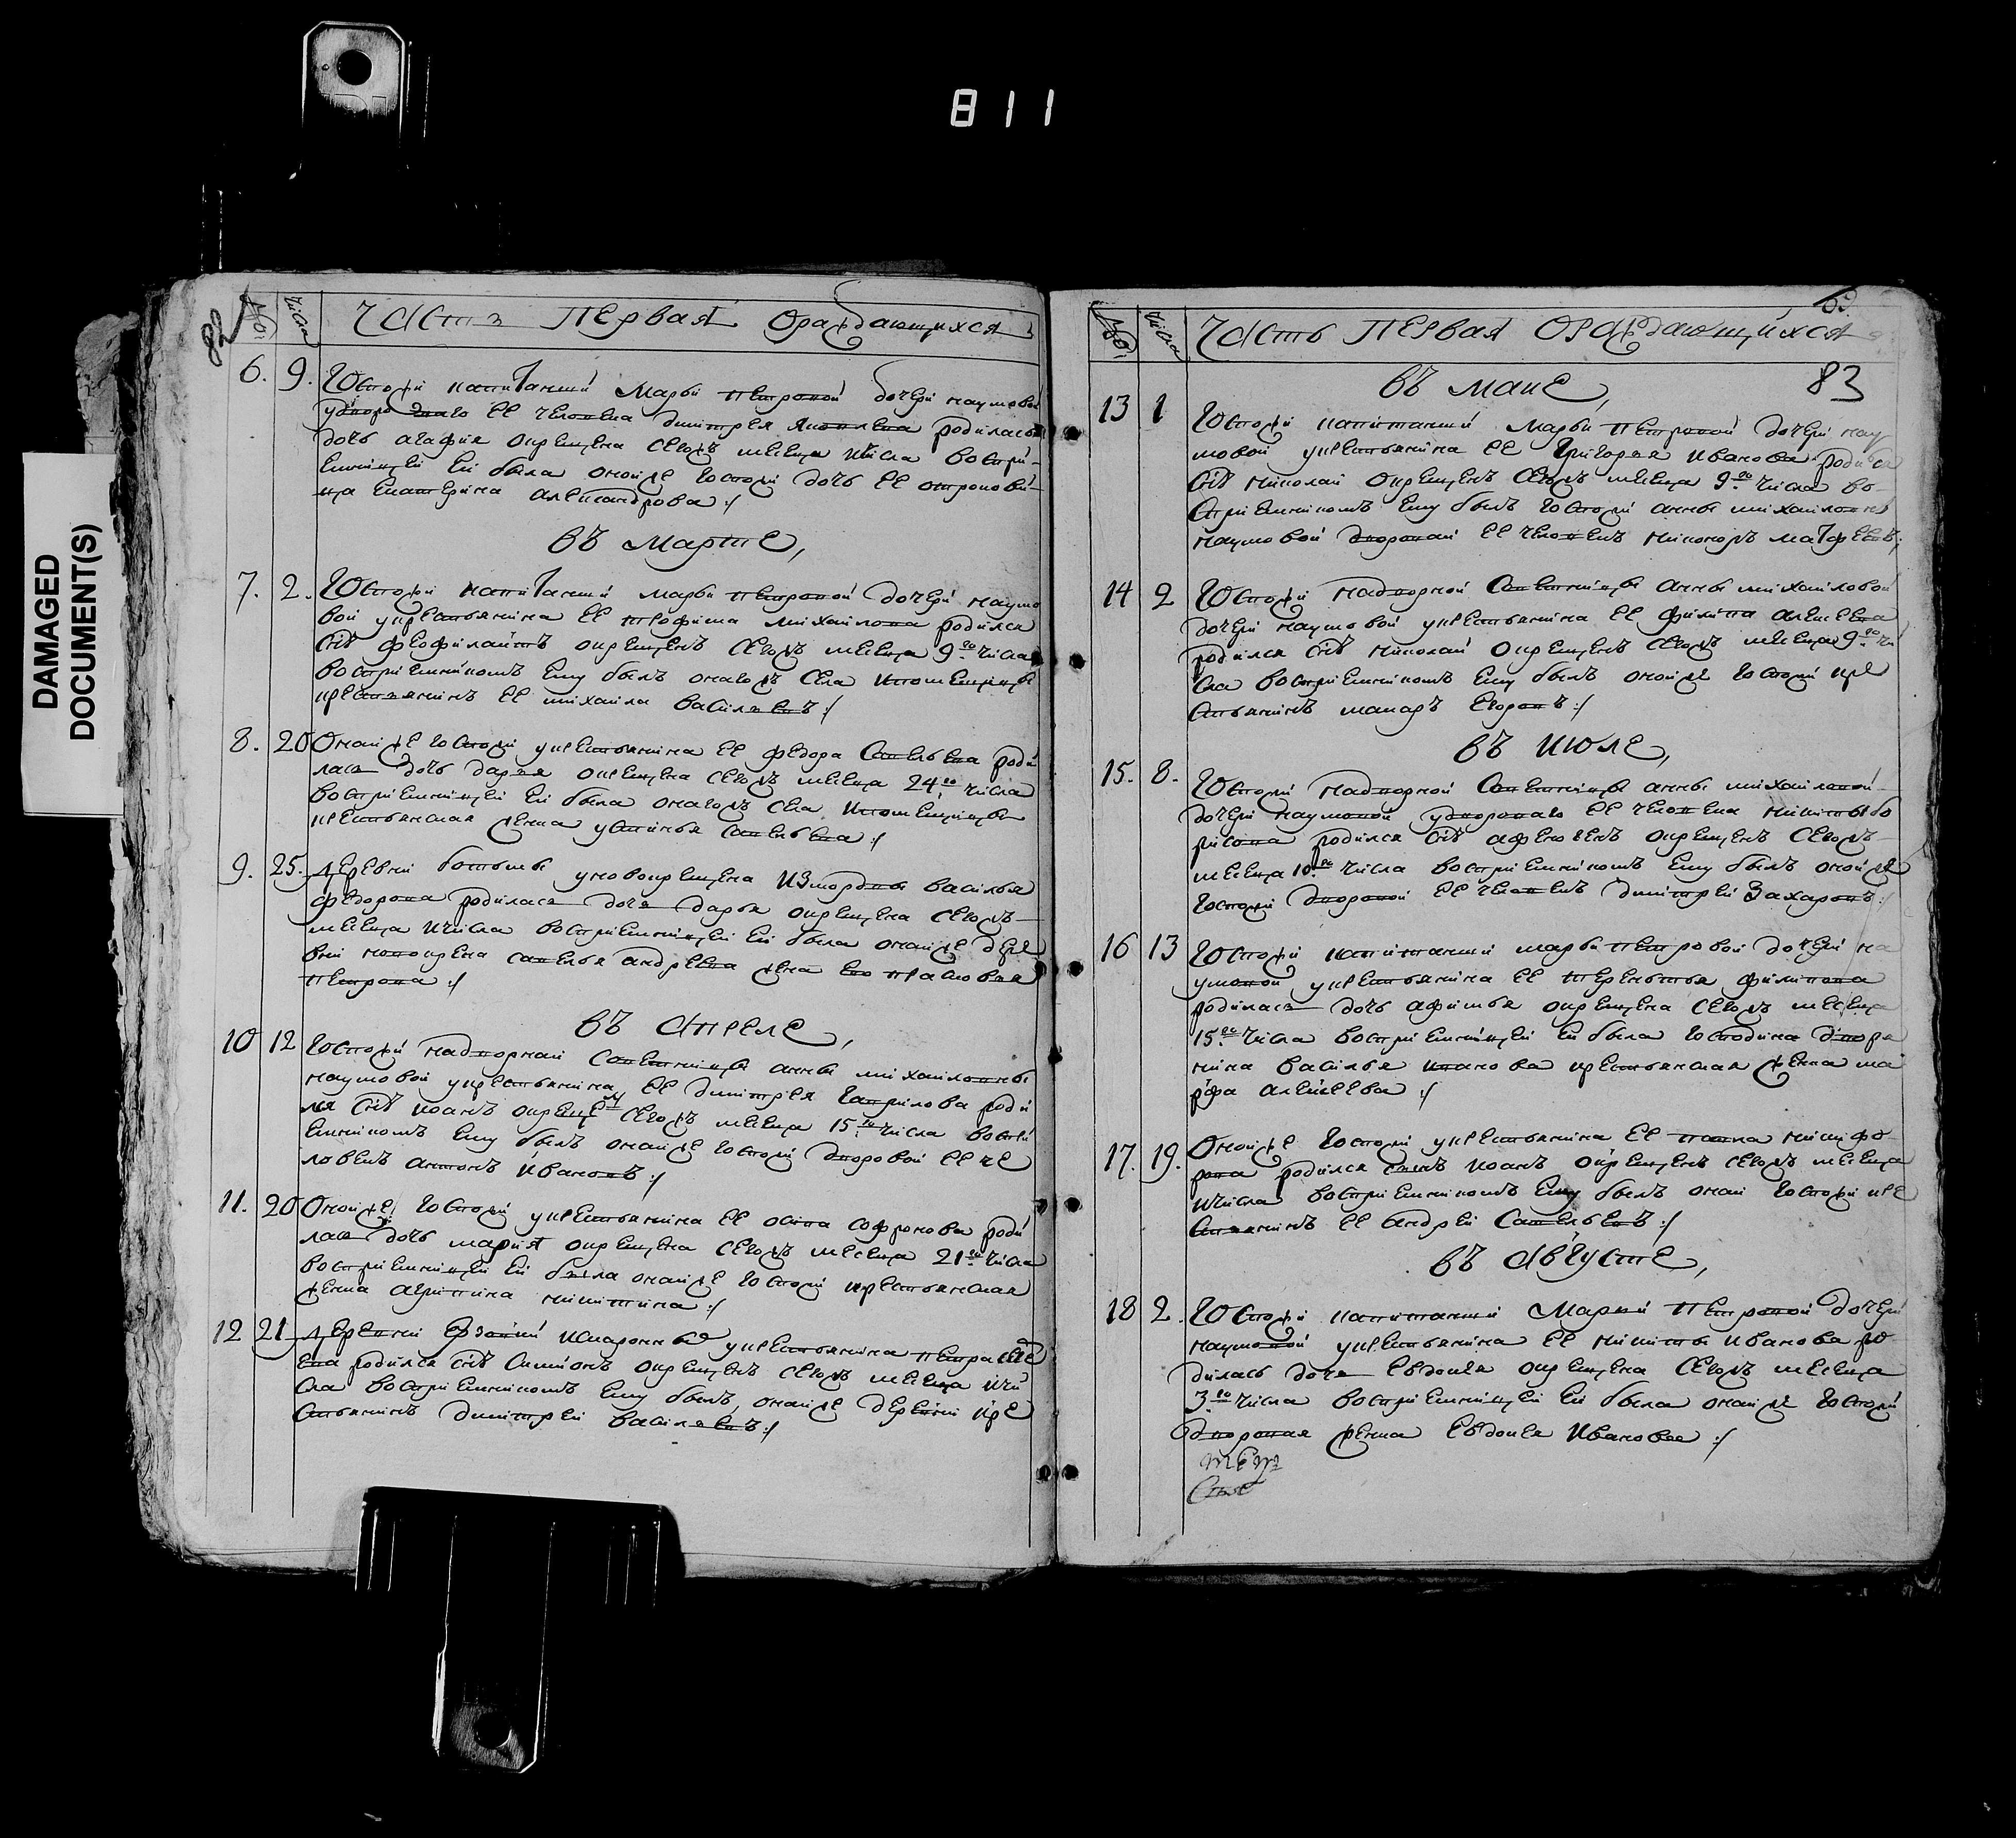 811
DAMAGED
DOCUMENT(S)
82
числа
Часть первая ораждающихся
6. 9. Госпожи капитанши Марьи петровой дочери наумовой
удворо­ваго ее человека дмитрея Яковлева родилась
дочь агафия окрещена сегожъ месеца числа воспри-
емницей ей была оной же госпожи дочь ее отрокови-
ца екатерина александрова :/
въ Марте,
7. 2. Госпожи капитанши марьи петровой дочери наумо
вой укрестьянина ее трофима михаилова родился
сiъ феофилактъ окрещенъ сегожъ месеца 9го числа
восприемникомъ ему былъ оногожъ села
крестьянинъ ее михаила василевъ :/
8. 20 Онай же госпожи укрестьянина ее федора савельева роди
лась дочь дарья окрещена сегожъ месеца 24го числа
восприемницей ей была оногожъ села
крестьянская жена устинья савельева :/
9. 25. Деревни ботьмы уновокрещена измордвы василья
федорова родилась дочь дарья окрещена сегожъ
месеца ичисла восприемницей ей была онай же дере
вни новокрена савелья андреева жена ево прасковья
петрова :/
въ Апреле,
10 12 Госпожи надворнай советницы анны михаиловны
наумовой укрестьянина ее дмитрея гаврилова роди
лся сiъ иоанъ окреще сегожъ месеца 15го числа воспри
емникомъ ему былъ онай же госпожи дворовой ее че
ловекъ антонъ ивановъ :/
11. 20 Оной же госпожи укрестьянина ее осипа софронова роди
лась дочь мария окрещена сегожъ месеца 21го числа
восприемницей ей была онай же госпожи крестьянская
жена агрипина никитина :/
12 21 Деревни укрестьянина петра
ева родился сiъ симионъ окрещенъ сегожъ месеца ичи
сла восприемникомъ ему былъ онай же деревни кре
стьянинъ дмитреи василевъ :/
числа
Часть первая ораждающихся
въ Маие,
83
13 1 Госпожи капитанши Марьи петровой дочери нау
мовой укрестьянина ее григорья иванова родился
сiъ николаи окрещенъ сегожъ месеца 9го числа во-
сприемникомъ ему былъ госпожи анны михаиловны
наумовой дворовай ее человекъ никоноръ матфеевъ
14 2 Госпожи надворной советницы анны михаиловой
дочери наумовой укрестьянина ее филипа алексеева
родился сiъ николаи окрещенъ сегожъ месеца 9го чи
сла восприемникомъ ему былъ оной же госпожи кре
стьянинъ макаръ егоровъ :/
въ Июле,
15. 8. Госпожи надворной советницы анны михаиловой
дочери наумовой удвороваго ее человека никиты бо
рисова родился сiъ афиногенъ окрещенъ сегожъ
месеца 10го числа восприемникомъ ему былъ оной же
госпожи дворовой ее человекъ дмитреи Захаровъ :/
16 13 Госпожи капитанши марьи петровой дочери на
умовой укрестьянина ее терентья филипова
родилась дочь афимья окрещена сегожъ месеца
15го числа восприемницей ей была господина дворе
нина василья иванова крестьянская жена ма
рфа алексеева :/
17. 19. Оной же госпожи укрестьянина ее павла никифо-
рова родился сынъ иоанъ окрещенъ сегожъ месеца
ичисла восприемникомъ ему былъ онай госпожи кре
стьянинъ ее андреи савельевъ :/
въ Августе,
18 2. Госпожи капитанши Марьи петровой дочери
наумовой укрестьянина ее никиты иванова ро
дилась дочь евдокея окрещена сегожъ месеца
3го числа восприемницей ей была онай же госпожи
дворовая жена евдокея ивановаа :/